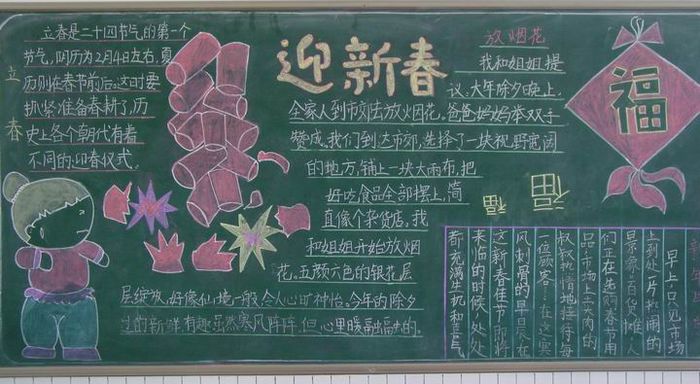 迎新春
立春
立春是二十四节气的第一个
节气,阴历为2月4日左右,夏
历则在春节前后。这时要
抓紧准备春耕了,历
史上各个朝代有着
不同的迎春仪式。
放烟花
我和姐姐提
议,大年除夕晚上,
全家人到市郊去放烟花。爸爸妈妈举双手
赞成。我们到达市郊,选择了一块视野宽阔
的地方,铺上一块大雨布,把
好吃食品全部摆上,简
直像个杂货店,我
和姐姐开始放烟
花。五颜六色的银花层
层绽放,好像仙境一般,令人心旷神怡。今年的除夕
过的新鲜、有趣。虽然寒风阵阵,但心里暖融融的。
福
福
福
早上只见市场
上到处一片热闹的
景象,百货摊,人
们正在选购春节用
品,市场上卖肉的
叔叔热情地招待每
一位顾客。在这寒
风刺骨的早晨,在
这新春佳节即将
来临的时候,处处
都充满生机和喜气